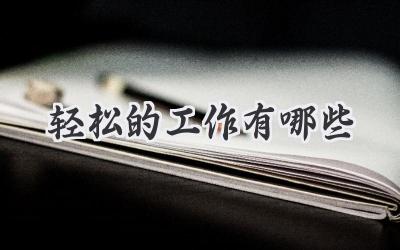 轻松的工作有哪些